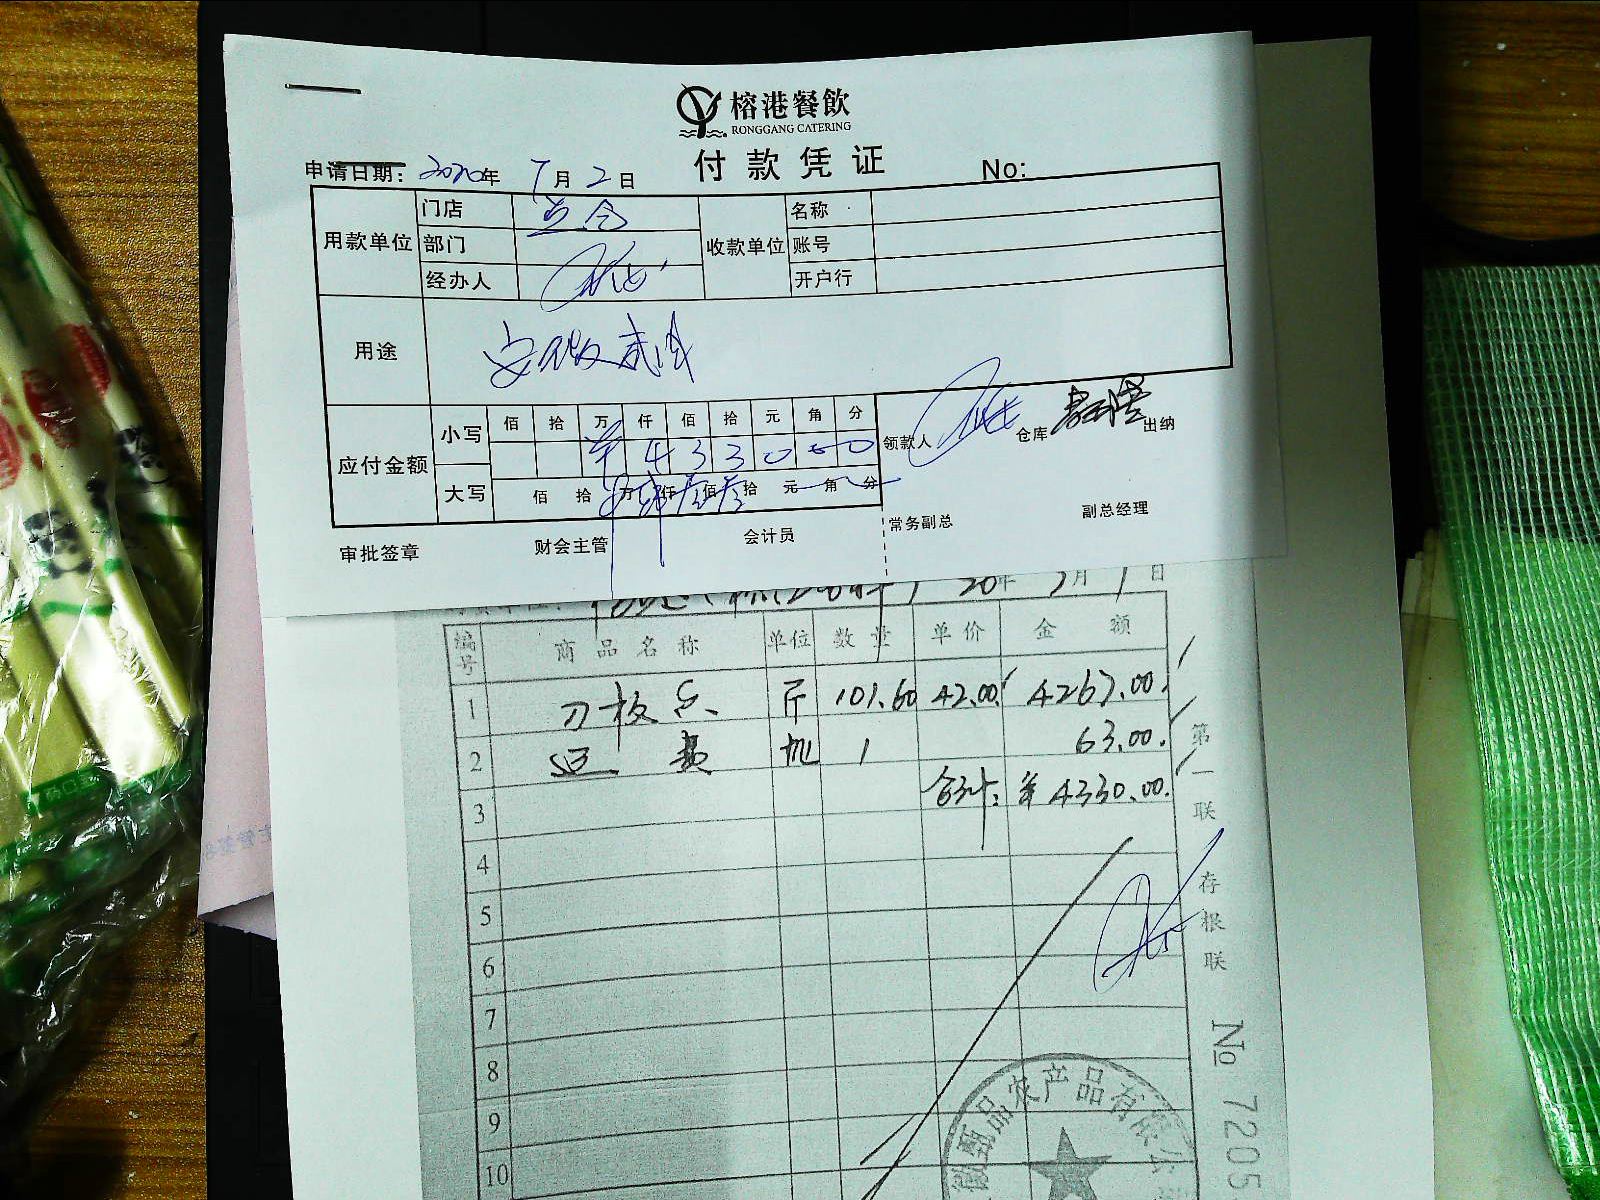 榕港餐飲
RONGGANG CATERING
付款凭证
申请日期: 2020年 7月 2日 No:
用款单位 门店 收款单位 名称
部门 账号
经办人 开户行
用途 安徽咸肉
应付金额 小写 佰 拾 万 仟 佰 拾 元 角 分
¥ 4 3 3 0 0 0
大写 佰 拾 万 仟 佰 拾 元 角 分
领款人 仓库 出纳
审批签章 财会主管 会计员 常务副总 副总经理
20年 7月 1日
编号 商品名称 单位 数量 单价 金额
1 刀板香 斤 101.60 42.00 4267.00
2 运费 批 1 63.00
3 合计: ¥4330.00
4
5
6
7
8
9
10
第一联 存根联
№ 7205
甄品农产品有限公